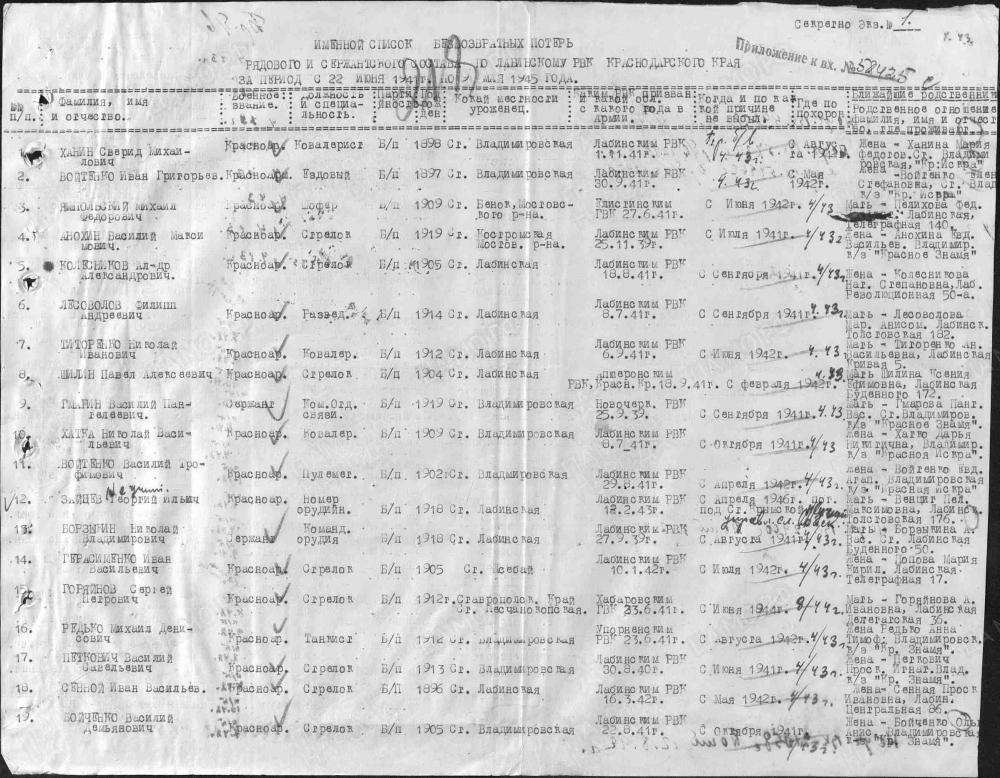 Секретно Экз.№ 1.
ИМЕННОЙ СПИСОК БЕЗВОЗВРАТНЫХ ПОТЕРЬ
Приложение к вх. №58425 с
РЯДОВОГО И СЕРЖАНТСКОГО СОСТАВА ПО ЛАБИНСКОМУ РВК КРАСНОДАРСКОГО КРАЯ
ЗА ПЕРИОД С 22 ИЮНЯ 1941г. ПО 9 МАЯ 1945 ГОДА.
№№ п/п. Фамилия, имя и отчество. Военное звание. Должность и специальность. Партийность Какой местности уроженец. Каким РВК призван и какой обл. с какого года в Армии. Когда и по какой причине не выбыл. Где по похорон Ближайшие родственники Родственное отношение фамилия, имя и отчество, где проживают.
1. ХАНИН Сверид Михаилович Красноар. Ковалерист Б/п 1898 Ст. Владимировская Лабинским РВК 1.11.41г. С Августа Жена - Ханина Мария Федотов. Ст. Владимировская, "Кр.Искра"
2. ВОЙТЕНКО Иван Григорьев. Красноарм. Ездовый Б/п 1897 Ст. Владимировская Лабинским РВК 30.9.41г. 4.43г. С Мая 1942г. Жена -Войтенко Стефановна, Ст. к/з "Кр. Искра"
3. ЯМПОЛЬСКИЙ Михаил Федорович Красноар. Шофер Б/п 1909 Ст. Бенок, Мостовского р-на. РВК 27.6.41г. С Июня 1942г. 4/43 Мать - Пелихова Фед. Лабинская, Телеграфная 140.
4. АНОХИН Василий Максимович. Красноар. Стрелок Б/п 1919 Ст. Костромская Мостов. р-на. Лабинским РВК 25.11.39г. С Июля 1941г. 4/43г. Жена - Анохина Евд. Васильев. Владимир. к/з "Красное Знамя"
5. КОЛЕСНИКОВ Ал-др Александрович. Красноар. Стрелок Б/п 1905 Ст. Лабинская Лабинским РВК 18.8.41г. С Сентября 1941г. 4/43г. Жена - Колесникова Наг. Степановна, Лаб. Революционная 50-а.
6. ЛЕСОВОЛОВ Филипп Андреевич Красноар. Развед. Б/п 1914 Ст. Лабинская Лабинским РВК 8.7.41г. С Сентября 1941г. 4.43г. Мать - Лесоволова Мар. Анисом. Лабинск. Толстовская 182.
7. ТИТОРЕНКО Николай Иванович Красноар. Ковалер. Б/п 1912 Ст. Лабинская Лабинским РВК 6.9.41г. С Июня 1942г. 4.43 Мать - Титоренко Ан. Васильевна, Лабинская Кривая 5.
8. ШИЛИН Павел Алексеевич Красноар. Стрелок Б/п 1904 Ст. Лабинская Апшеронским РВК, Красн.Кр.18.9.41г. С февраля 1942г. Мать Шилина Ксения Ефимовна, Лабинская Буденного 172.
9. ГМАРИН Василий Пантелеевич. Сержант Ком.Отд. связи. Б/п 1919 Ст. Владимировская Новочерк. РВК 25.9.39. С Сентября 1941г. 4.43 Мать - Гмарова Пант. Вас. Ст.Владимиров. к/з "Красное Знамя".
10. ХАТКА Николай Васильевич Красноар. Ковалер. Б/п 1909 Ст. Владимировская Лабинским РВК 8.7.41г. С Октября 1941г. 4/43 Жена - Хатко Дарья Никитична, Владимир. к/з "Красноя Искра".
11. ВОЙТЕНКО Василий Трофимович Красноар. Пулемет. Б/п 1902г. Ст. Владимировская Лабинским РВК 29.8.41г. С Апреля 1942г. 4/43г. Жена - Войтенко Евд. Агап. Владимировская к/з "Красная Искра"
12. ЗАЙЦЕВ Георгий Ильич Красноар. Номер орудийн. Б/п 1918 Ст. Лабинская Лабинским РВК 12.2.43г. С Апреля 1946г. пог. под Ст.Крымской Мать - Венцит Пел. Максимовна, Лабинск. Толстовская 176.
13. БОРЗЫКИН Николай Владимирович Сержант Команд. орудия Б/п 1918 Ст. Лабинская Лабинским РВК 27.9.39г. С Августа 1941г. 4/43г. Мать - Борзыкина А. Вас. Ст. Лабинская Буденного 50.
14. ГЕРАСИМЕНКО Иван Васильевич Красноар. Стрелок Б/п 1905 Ст. Псебай Лабинским РВК 10.1.42г. С Июля 1942г. 4/43г. Жена - Попова Мария Кирил. Лабинская. Телеграфная 17.
15. ГОРЯЙНОВ Сергей Петрович Красноар. Стрелок Б/п 1912г. Ставрополск. Край Ст. Песчанокопская. Хабаровским РВК 23.6.41г. С Июня 1944г. 8/44г. Мать - Горяйнова А. Ивановна, Лабинская Делегатская 36.
16. РЕДЬКО Михаил Денисович Красноар. Танкист Б/п 1912 Ст. Владимировская Упорненским РВК 23.6.41г. С Августа 1942г. 4/43г. Жена Редько Анна Тимоф. Владимировск. к/з "Кр. Знамя".
17. ПЕТКОВИЧ Василий Савельевич Красноар. Стрелок Б/п 1913 Ст. Владимировская Лабинским РВК 30.8.40г. С Июня 1941г. 4/43г. Жена - Петкович Проск. Игнат.Влад. к/з "Кр. Знамя".
18. СЕННОЙ Иван Васильев. Красноар. Стрелок Б/П 1896 Ст. Лабинская Лабинским РВК 16.3.42г. С Мая 1942г. 4/43г. Жена-Сенная Проск Ивановна, Лабин. Центральная 86.
19. БОЙЧЕНКО Василий Демьянович Красноар. Стрелок Б/п 1905 Ст. Владимировская Лабинским РВК 22.8.41г. С Октября 1941г. Жена - Бойченко Ольг Анис. Владимировская к-з "Кр. Знамя".